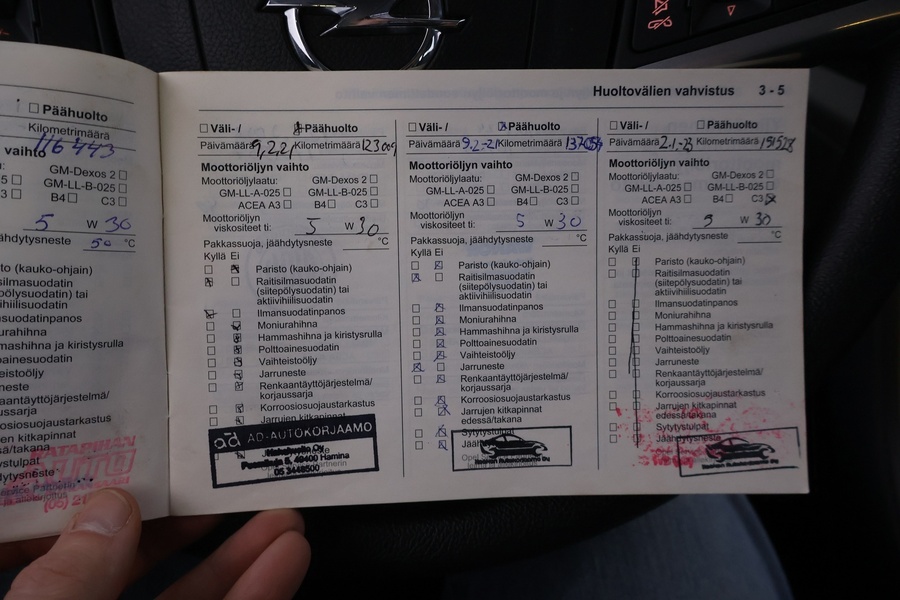 Päähuolto
Kilometrimäärä
116 443
vaihto
GM-Dexos 2
GM-LL-B-025
B4 C3
5 W 30
jäähdytysneste 50 °C
to (kauko-ohjain)
suodatinpanos
Hammashihna ja kiristysrulla
Korroosiosuojaustarkastus
Huoltovälien vahvistus 3 - 5
Väli- / Päähuolto
Päivämäärä Kilometrimäärä
Moottoriöljyn vaihto
Moottoriöljylaatu: GM-Dexos 2
GM-LL-A-025 GM-LL-B-025
ACEA A3 B4 C3
Moottoriöljyn
viskositeet ti: 5 W 30
Pakkassuoja, jäähdytysneste °C
Kyllä Ei
Paristo (kauko-ohjain)
Raitisilmasuodatin
(siitepölysuodatin) tai
aktiivihiilisuodatin
Ilmansuodatinpanos
Moniurahihna
Hammashihna ja kiristysrulla
Polttoainesuodatin
Vaihteistoöljy
Jarruneste
Renkaantäyttöjärjestelmä/
korjaussarja
Korroosiosuojaustarkastus
Jarrujen kitkapinnat
ad AD-AUTOKORJAAMO
49400 Hamina
05 3448500
Väli- / Päähuolto
Päivämäärä 9.2.-21 Kilometrimäärä
Moottoriöljyn vaihto
Moottoriöljylaatu: GM-Dexos 2
GM-LL-A-025 GM-LL-B-025
ACEA A3 B4 C3
Moottoriöljyn
viskositeet ti: 5 W 30
Pakkassuoja, jäähdytysneste °C
Kyllä Ei
Paristo (kauko-ohjain)
Raitisilmasuodatin
(siitepölysuodatin) tai
aktiivihiilisuodatin
Ilmansuodatinpanos
Moniurahihna
Hammashihna ja kiristysrulla
Polttoainesuodatin
Vaihteistoöljy
Jarruneste
Renkaantäyttöjärjestelmä/
korjaussarja
Korroosiosuojaustarkastus
Jarrujen kitkapinnat
edessä/takana
Sytytystulpat
Väli- / Päähuolto
Päivämäärä 2.1.-23 Kilometrimäärä
Moottoriöljyn vaihto
Moottoriöljylaatu: GM-Dexos 2
GM-LL-A-025 GM-LL-B-025
ACEA A3 B4 C3
Moottoriöljyn
viskositeet ti: 5 W 30
Pakkassuoja, jäähdytysneste °C
Kyllä Ei
Paristo (kauko-ohjain)
Raitisilmasuodatin
(siitepölysuodatin) tai
aktiivihiilisuodatin
Ilmansuodatinpanos
Moniurahihna
Hammashihna ja kiristysrulla
Polttoainesuodatin
Vaihteistoöljy
Jarruneste
Renkaantäyttöjärjestelmä/
korjaussarja
Korroosiosuojaustarkastus
Jarrujen kitkapinnat
edessä/takana
Sytytystulpat
Jäähdytysneste